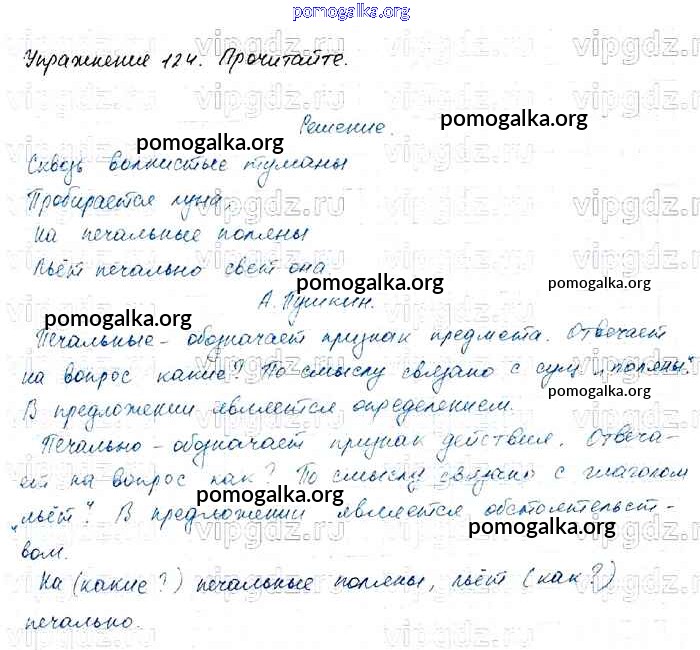 pomogalka.org
Упражнение 124. Прочитайте.
Решение.
Сквозь волнистые туманы
Пробирается луна,
На печальные поляны
Льёт печально свет она.
А. Пушкин.
Печальные - обозначает признак предмета. Отвечает
на вопрос какие? По смыслу связано с сущ. „поляны".
В предложении является определением.
Печально - обозначает признак действия. Отвеча-
ет на вопрос как? По смыслу связано с глаголом
„льёт". В предложении является обстоятельст-
вом.
На (какие?) печальные поляны, льёт (как?)
печально.
pomogalka.org
pomogalka.org
pomogalka.org
pomogalka.org
pomogalka.org
pomogalka.org
pomogalka.org
vipgdz.ru